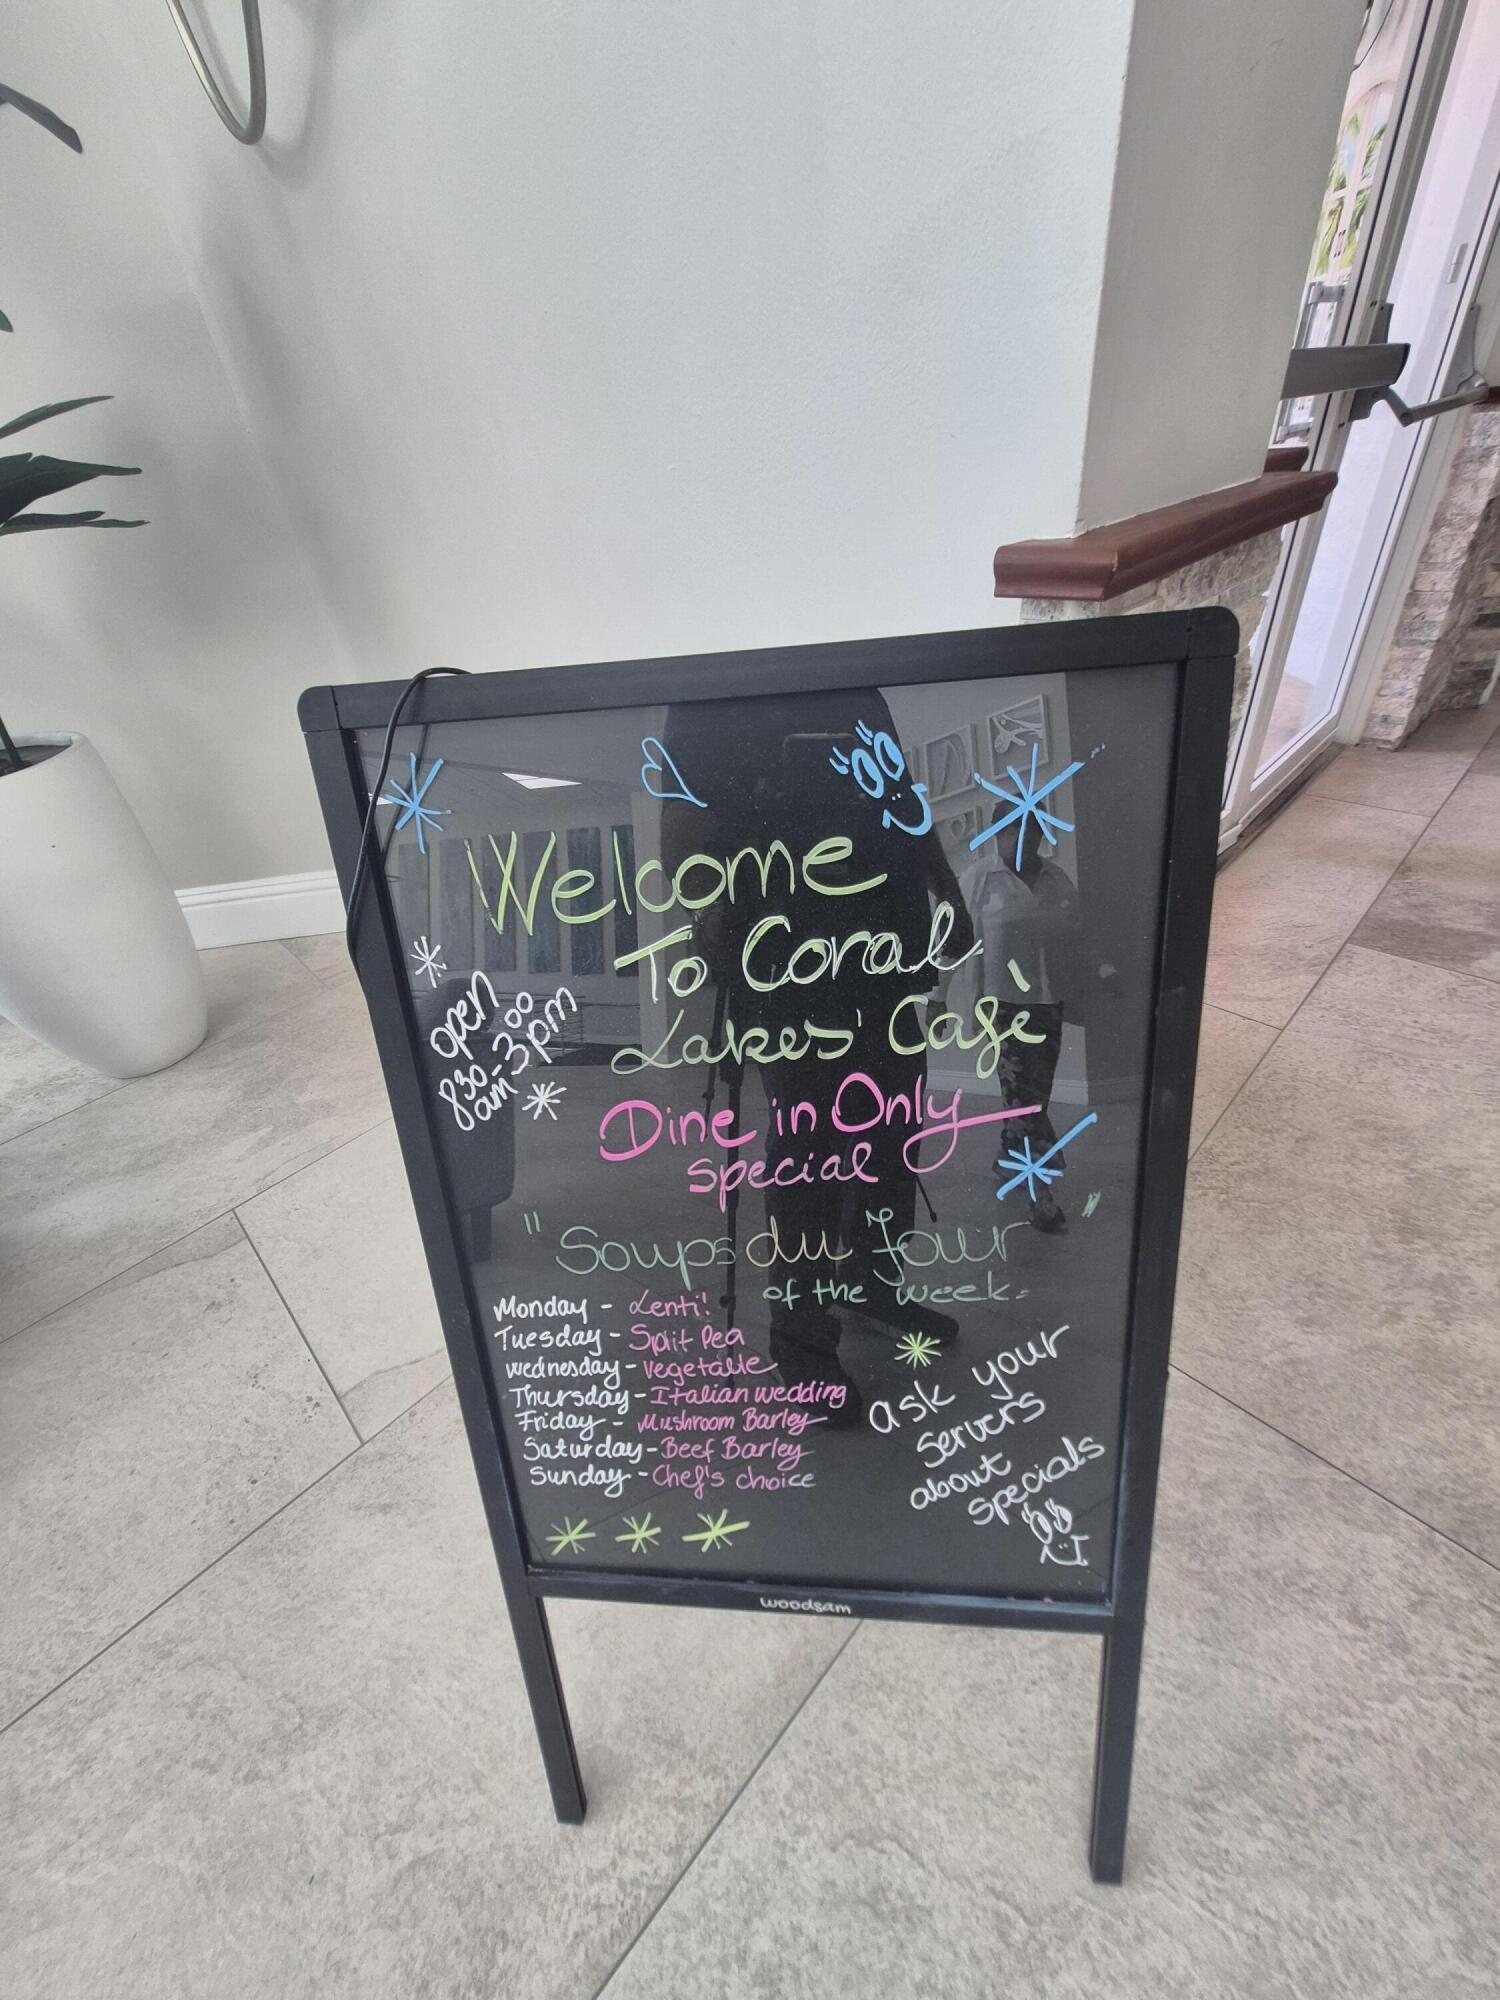 Welcome
To Coral
Lakes' Cafè
open
8:30 - 3:00
am pm
Dine in Only
special
"Soups du Jour"
of the week.
Monday - Lentil
Tuesday - Split Pea
Wednesday - Vegetable
Thursday - Italian wedding
Friday - Mushroom Barley
Saturday - Beef Barley
Sunday - Chef's choice
ask your
servers
about
specials
woodsam